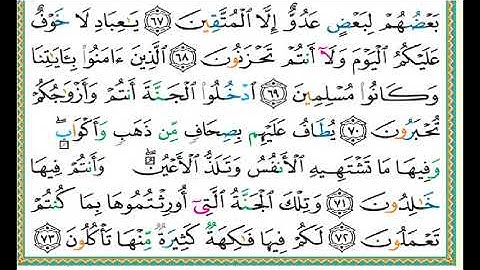 بَعْضُهُمْ لِبَعْضٍ عَدُوٌّ إِلَّا الْمُتَّقِينَ ﴿٦٧﴾ يَاعِبَادِ لَا خَوْفٌ
عَلَيْكُمُ الْيَوْمَ وَلَا أَنتُمْ تَحْزَنُونَ ﴿٦٨﴾ الَّذِينَ ءَامَنُوا بِـَٔايَاتِنَا
وَكَانُوا مُسْلِمِينَ ﴿٦٩﴾ ادْخُلُوا الْجَنَّةَ أَنتُمْ وَأَزْوَاجُكُمْ
تُحْبَرُونَ ﴿٧٠﴾ يُطَافُ عَلَيْهِم بِصِحَافٍ مِّن ذَهَبٍ وَأَكْوَابٍ ۖ
وَفِيهَا مَا تَشْتَهِيهِ الْأَنفُسُ وَتَلَذُّ الْأَعْيُنُ ۖ وَأَنتُمْ فِيهَا
خَالِدُونَ ﴿٧١﴾ وَتِلْكَ الْجَنَّةُ الَّتِي أُورِثْتُمُوهَا بِمَا كُنتُمْ
تَعْمَلُونَ ﴿٧٢﴾ لَكُمْ فِيهَا فَاكِهَةٌ كَثِيرَةٌ مِّنْهَا تَأْكُلُونَ ﴿٧٣﴾